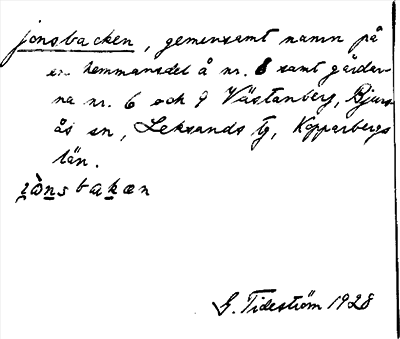 jonsbacken, gemensamt namn på
en hemmansdel å nr. 8 samt gårdar-
na nr. 6 och 9 Västanberg, Bjurs-
ås sn, Leksands tg, Kopparbergs
län.
G. Tideström 1928